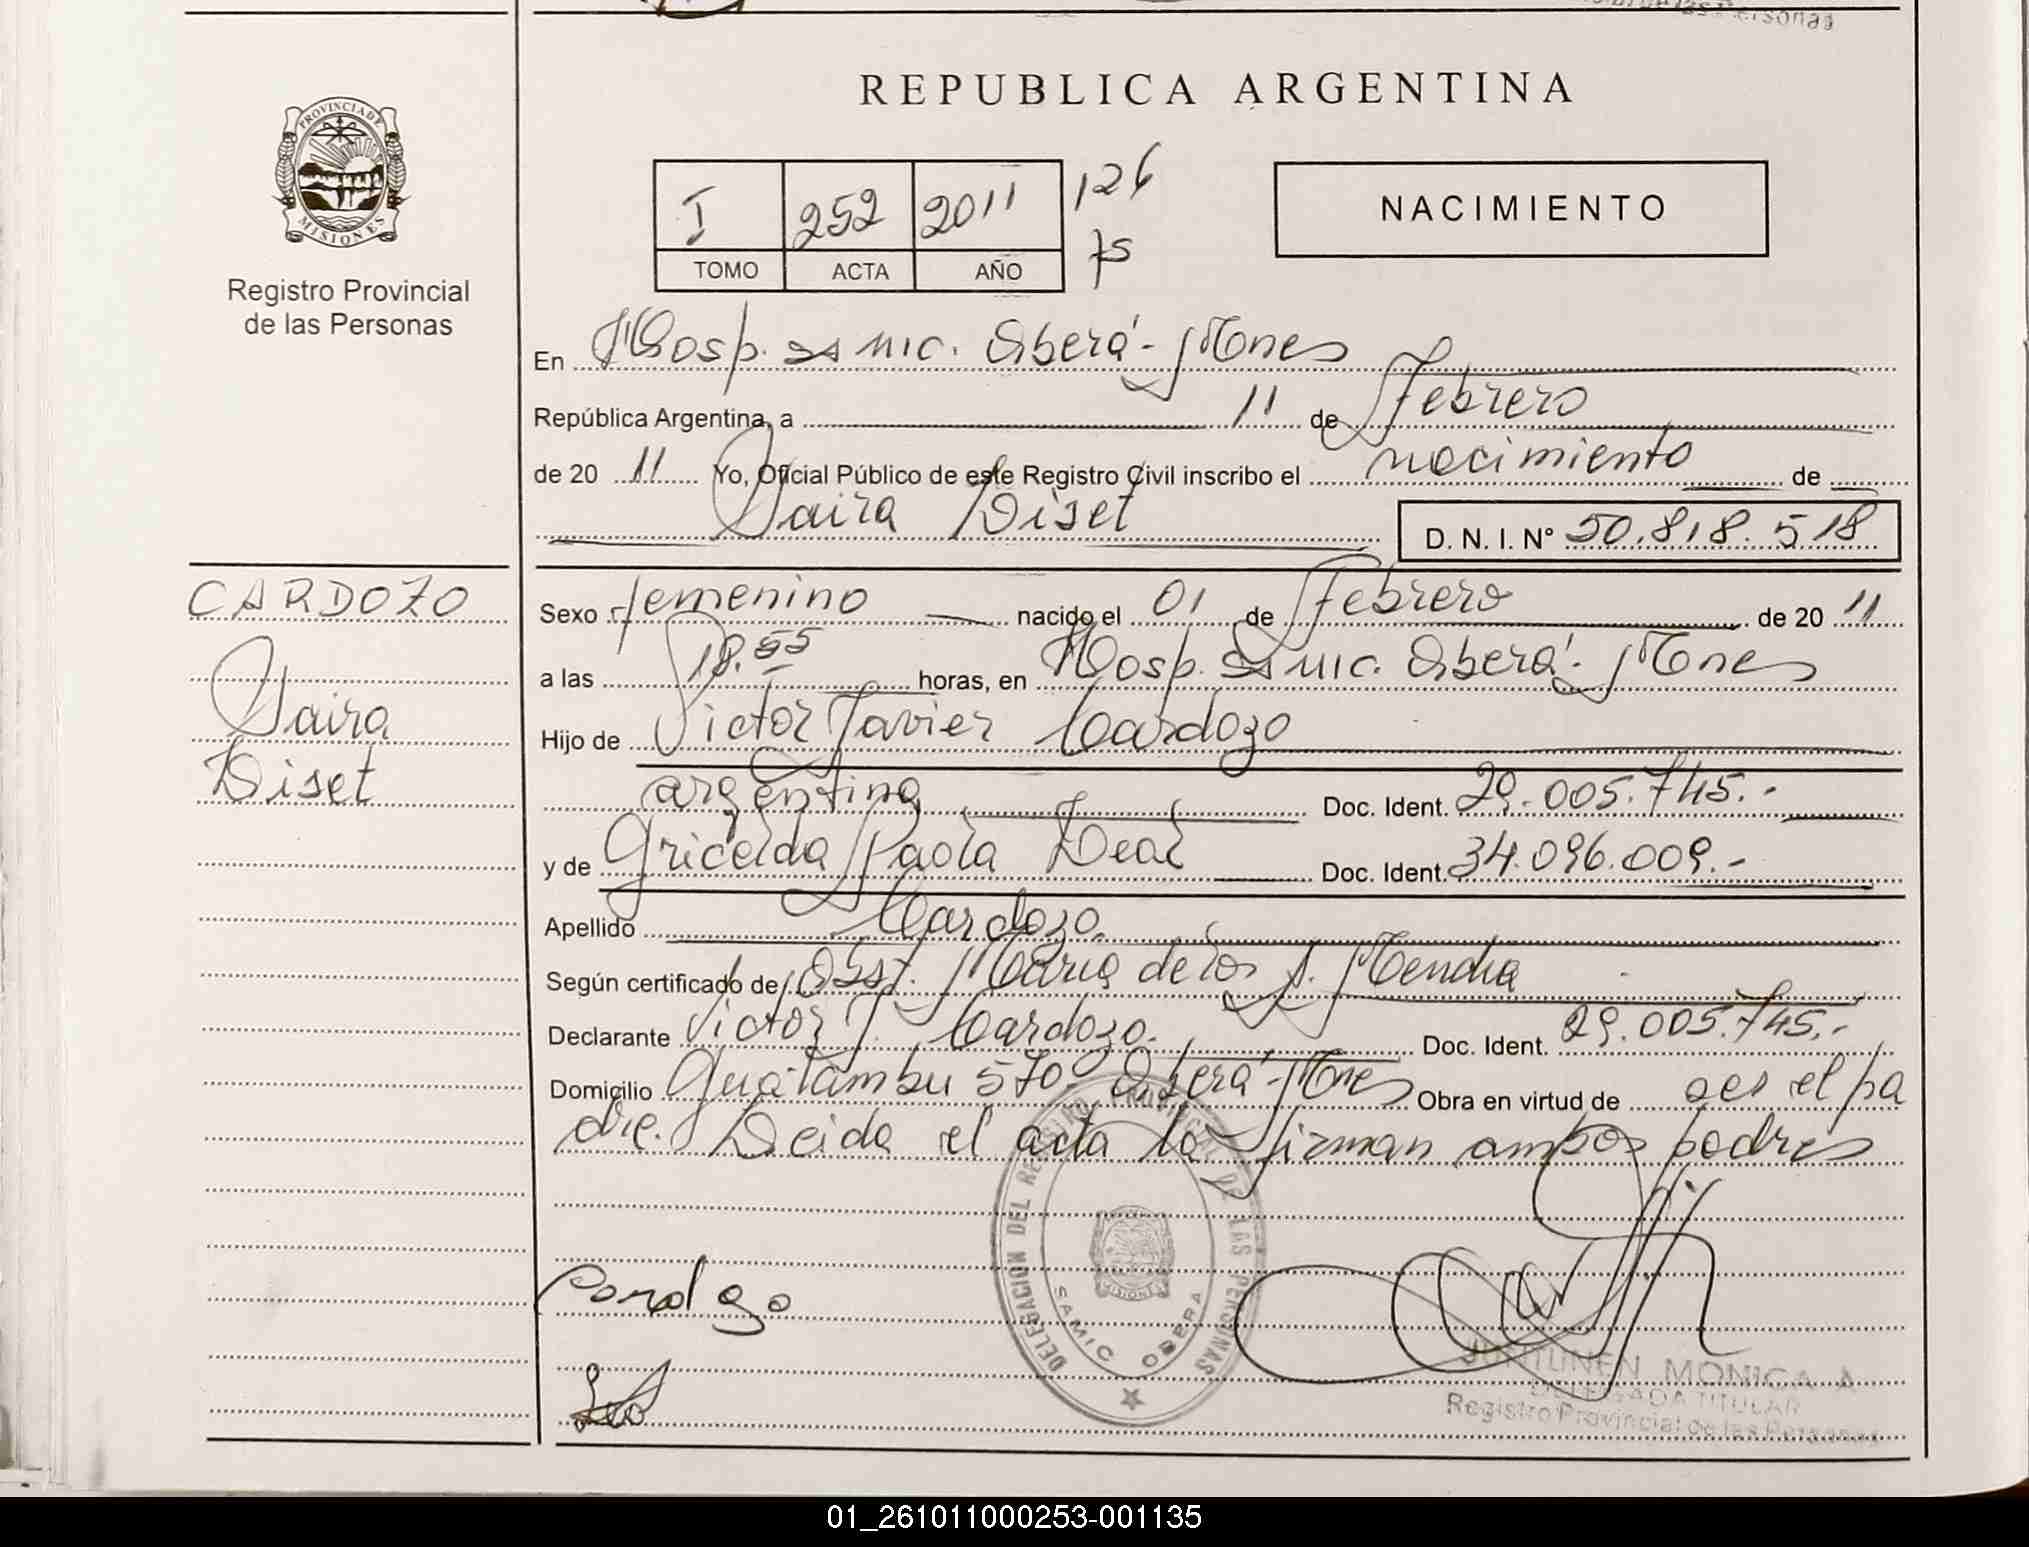 REPUBLICA ARGENTINA
PROVINCIA DE
MISIONES
Registro Provincial
de las Personas
I 252 2011 126
TOMO ACTA AÑO 75
NACIMIENTO
En Hosp. Samic. Oberá - Mnes
República Argentina, a 11 de Febrero
de 20 11 Yo, Oficial Público de este Registro Civil inscribo el nacimiento de
Yaira Liset D. N. I. Nº 50.818.518
CARDOZO
Yaira
Liset
Sexo femenino nacido el 01 de Febrero de 20 11
a las 18.55 horas, en Hosp. Samic. Oberá - Mnes
Hijo de Victor Javier Cardozo
argentino Doc. Ident. 29.005.745.-
y de Gricelda Paola Leal Doc. Ident. 34.096.009.-
Apellido Cardozo.
Según certificado de Obst. Maria de los A. Mendia
Declarante Victor J. Cardozo. Doc. Ident. 29.005.745.-
Domicilio Guatambu 570 - Oberá - Mnes Obra en virtud de ser el pa
dre. Leida el acta la firman ambos padres
Cardozo
DELEGACION DEL REGISTRO PROVINCIAL DE LAS PERSONAS
MISIONES
SAMIC OBERA
MONICA A
DELEGADA TITULAR
Registro Provincial de las Personas
01_261011000253-001135